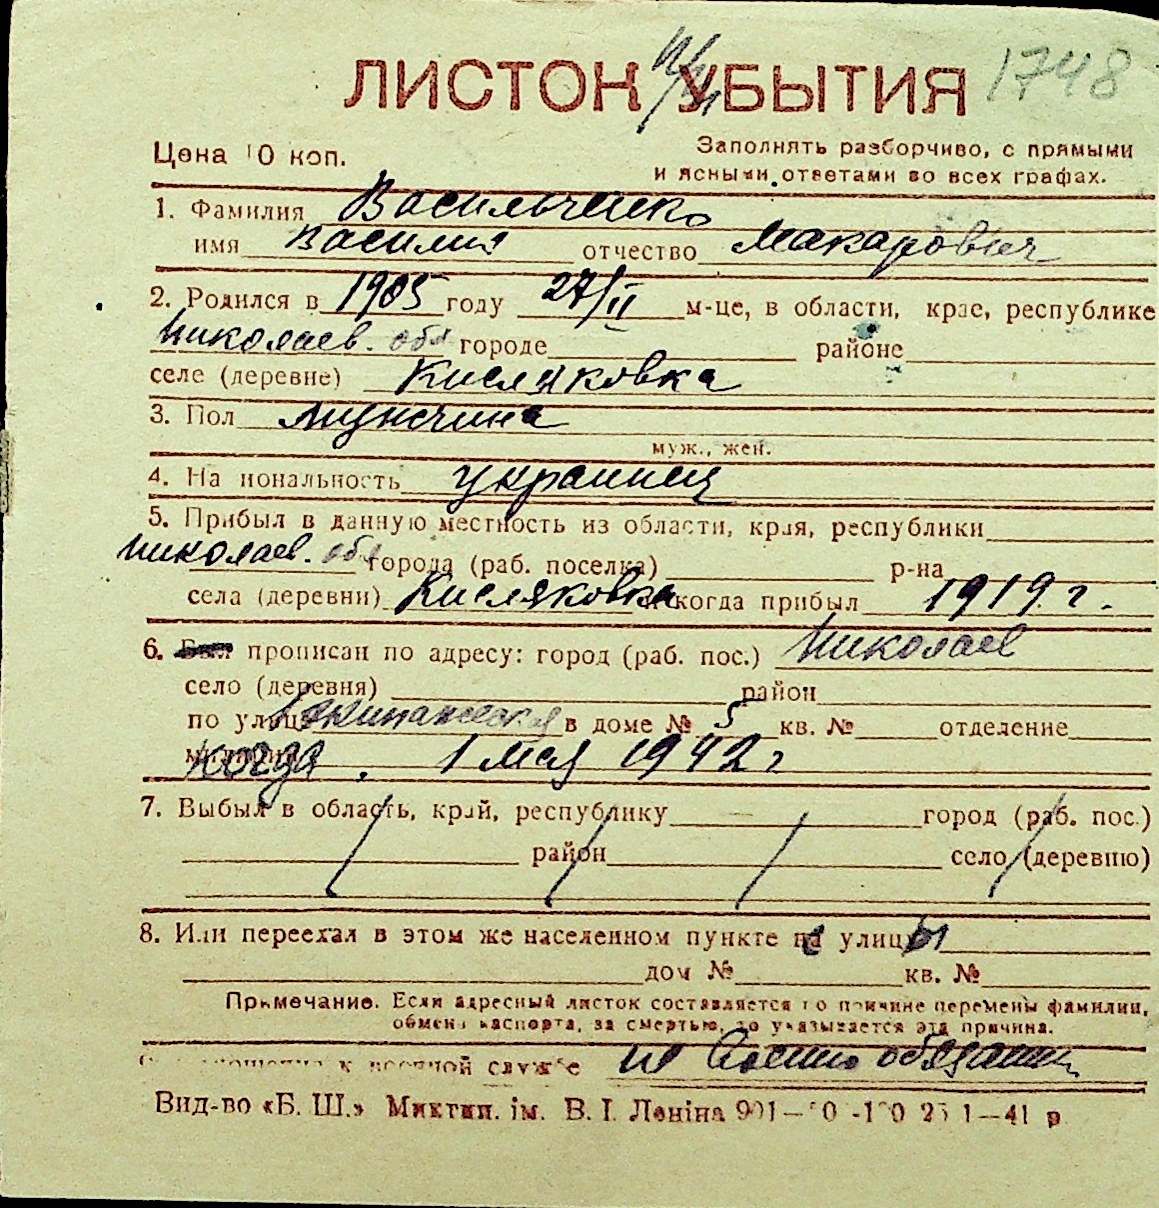 ЛИСТОК УБЫТИЯ 1748
Цена 10 коп.
Заполнять разборчиво, с прямыми
и ясными ответами во всех графах.
1. Фамилия Васильченко
имя Василий отчество Макарович
2. Родился в 1905 году 27/II м-це, в области, крае, республике
Николаев. обл городе районе
селе (деревне) Кисляковка
3. Пол мужчина
муж., жен.
4. Национальность украинец
5. Прибыл в данную местность из области, края, республики
Николаев. обл города (раб. поселка) р-на
села (деревни) Кисляковка и когда прибыл 1919 г.
6. Был прописан по адресу: город (раб. пос.) Николаев
село (деревня) район
по улице Экипажеская в доме № 5 кв. № отделение
милиции когда. 1 мая 1942 г
7. Выбыл в область, край, республику город (раб. пос.)
район село (деревню)
8. Или переехал в этом же населенном пункте с улицы
дом № кв. №
Примечание. Если адресный листок составляется по причине перемены фамилии,
обмена паспорта, за смертью, то указывается эта причина.
к военной службе не военно обязанный
Вид-во «Б. Ш.» Миктип. ім. В. І. Леніна 901— 1—41 р